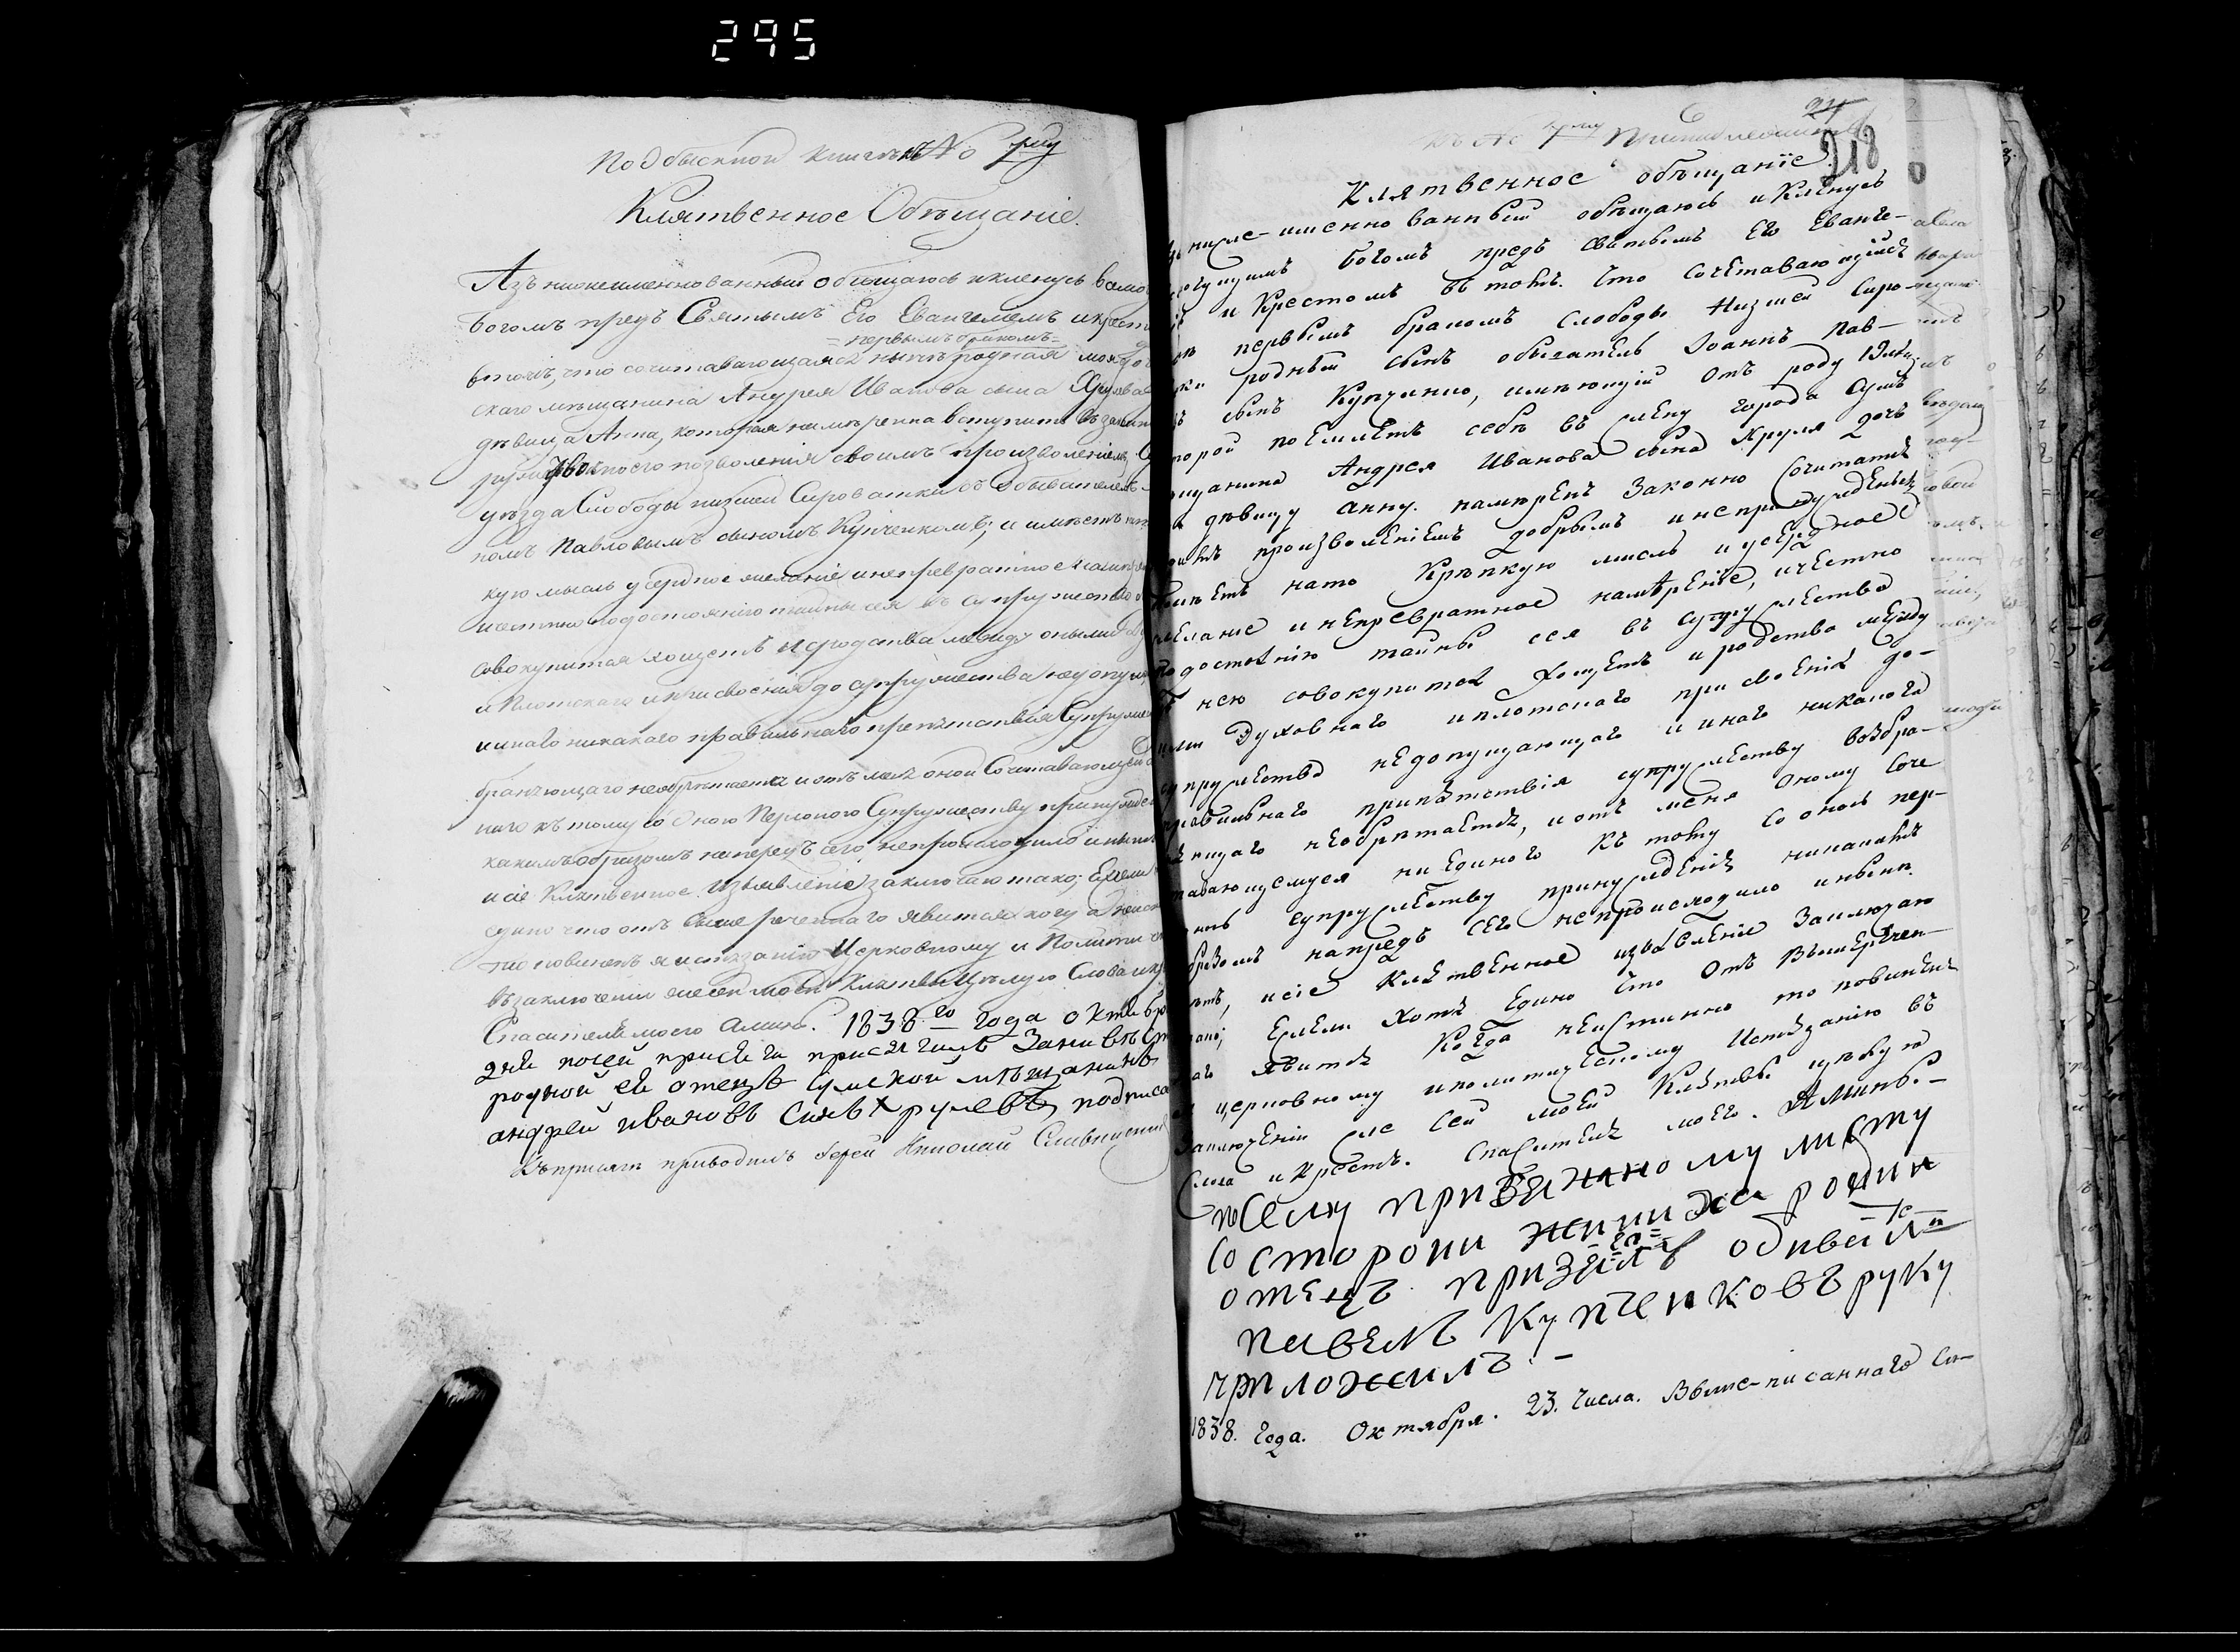 295
Подбыскной книгѣ №
Клятвенное Обѣщаніе.
Азъ нижеименнованный обѣщаюсь и кленусь всемо
Богомъ предъ Святымъ Его Евангелiемъ и крест
=первымъ бракомъ=
втомъ, что сочитавающаяся нынѣ родная моя до
скаго мѣщанина Андрея Иванова сына Хрулева
дѣвица Анна, которая намѣренна вступить въ закон
позволенія своимъ произволеніемъ
уѣзда Слободы низшей Сыроватки съ обывателемъ
номъ Павловымъ сыномъ Купченкомъ; и имѣетъ
кую мысль усердное желаніе и непревратное намѣ
и честно подостоянію тайны сея въ супружество
совокупится хощетъ и родства между оными
и Плотскаго и присвоенія до супружества недопущ
и инаго никакаго правильнаго препятствія Супруже
браняющаго необрѣтается и отъ мене оной Сочитавающейся
наго къ тому со оною Персоною Супружеству принужден
какимъ образомъ напередъ сего непроисходило и нынѣ
и сіе Клятвенное Изъявленіе заключаю тако; Ежели
едино что отъ вышереченнаго явится когда неист
то повиненъ я истязанію Церковному и Полити
въ заключеніи же сей моей Клятвы Цѣлую Слова и кр
Спасителя моего Аминь. 1838го года октября
дня посей присяги присягалъ
родной ей отецъ Сумской мѣщанинъ
андрей ивановъ синъ Хрулевъ подписа
Къ присягѣ приводилъ Іерей Николай
24
218
Клятвенное обѣщаніе
ниже-именнованный обѣщаюсь и Кленусь
могущимъ богомъ предъ святымъ Его Еванге-
и Крестомъ въ томъ. Что сочетавающійся
первымъ бракомъ слободы Низшей Сыро-
ки родный сынъ обыватель Іоаннъ Пав-
въ сынъ Купченко, имѣющій отъ роду
торой поемлетъ себѣ въ жену города Сумъ
ѣщанина Андрея Иванова сына Хруля дочь
дѣвицу анну. намѣренъ Законно Сочитатся
оимъ произволеніемъ добрымъ и непринужденнымъ
имѣетъ нато Крѣпкую мысль и усердное
желаніе и непревратное намѣреніе, и честно
подостоянію тайны сея въ супружество
нею совокупится Хощетъ и родства между
ими Духовнаго и плотскаго присвоенія до-
супружества недопущающаго и инаго никакого
правильнаго припятствія супружеству возбра-
няющаго необрѣтается, и отъ меня Оному Соче
тавающемуся ни единого къ тому со оною пер-
супружеству принужденія никакимъ
образомъ напредъ сего непроисходило и нынѣ
нѣтъ, и сіе Клятвенное изъявленіе Заключаю
тако; Ежели Хотя Едино что Отъ Вышеречен-
наго явится Когда неистинно то повиненъ
церковному и политическому Истязанію въ
Заключеніи же сей моей Клятвы цѣлую
Слова и Крестъ. Спасителя моего. Аминь.-
ксему присяжному листу
Состорони жениха родни
отецъ обивател
павелъ Купченковъ руку
приложилъ.-
1838. Года. Октября. 23. Числа. Выше-писаннаго